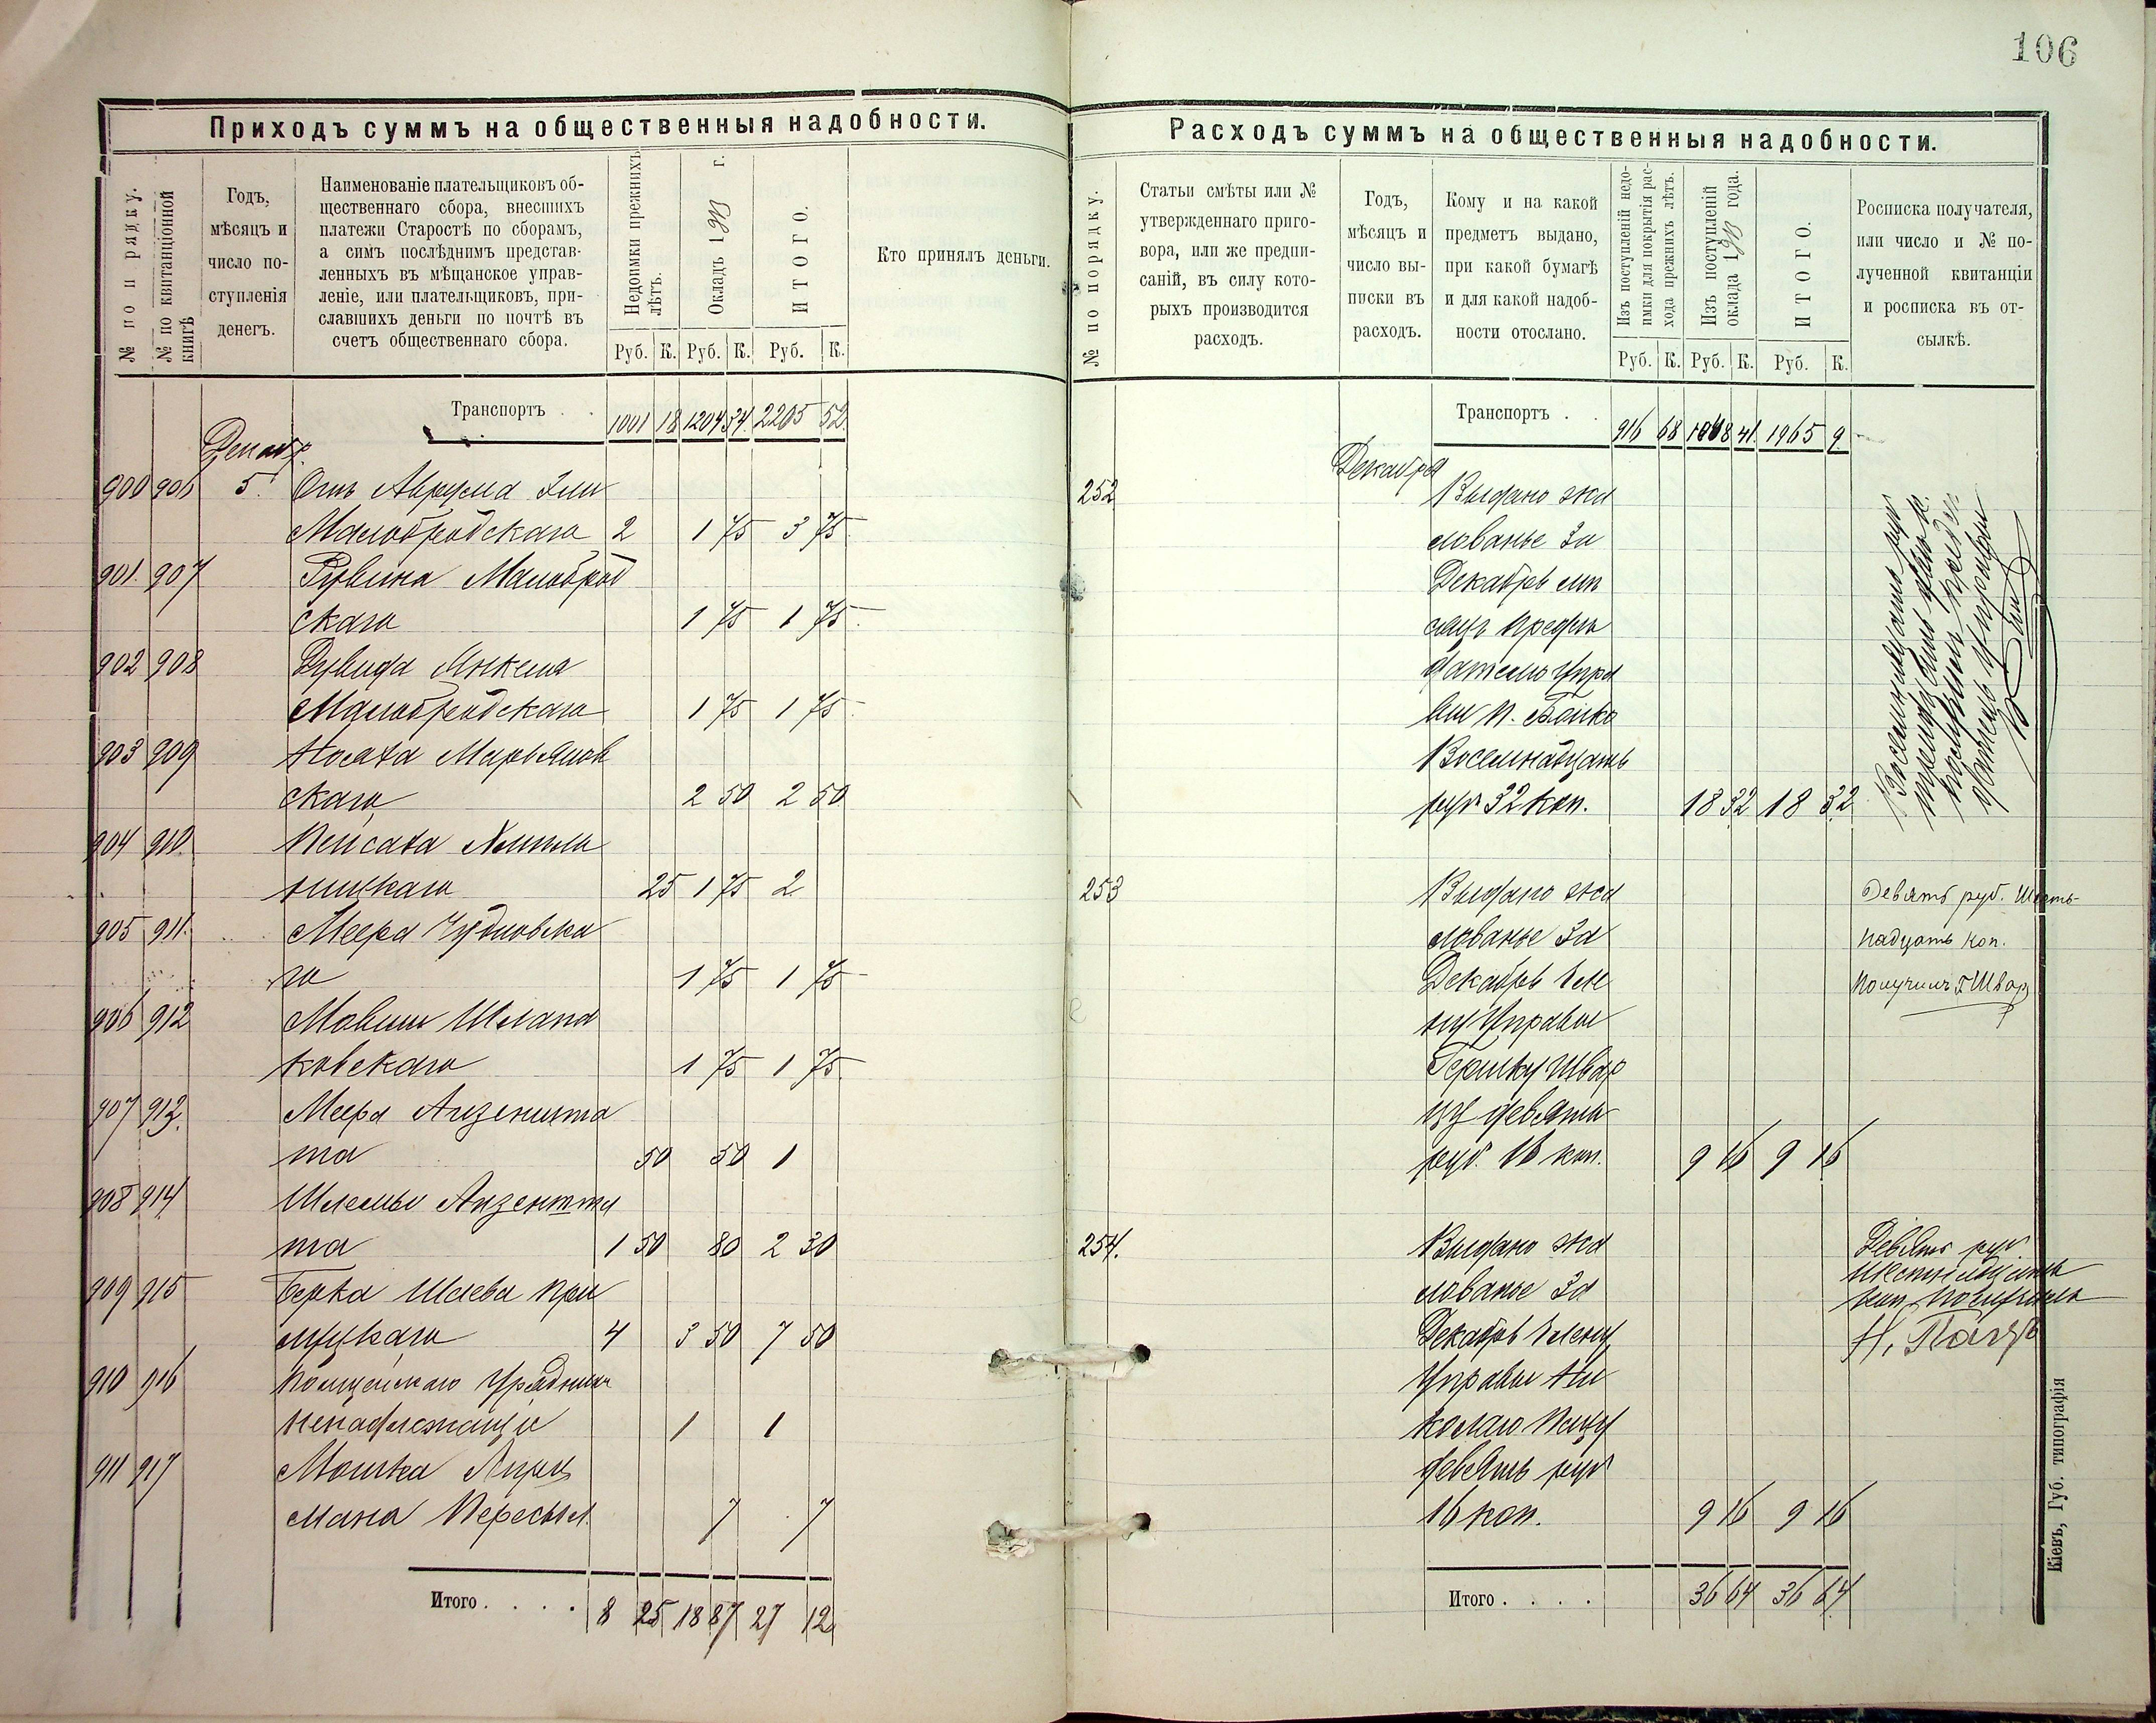 106
Приходъ суммъ на общественныя надобности.
№ по порядку.
№ по квитанціонной книгѣ
Годъ, мѣсяцъ и число поступленія денегъ.
Наименованіе плательщиковъ об-
щественнаго сбора, внесшихъ
платежи Старостѣ по сборамъ,
а симъ послѣднимъ представ-
ленныхъ въ мѣщанское управ-
леніе, или плательщиковъ, при-
славшихъ деньги по почтѣ въ
счетъ общественнаго сбора.
Недоимки прежнихъ лѣтъ.
Окладъ 1 г.
ИТОГО.
Кто принялъ деньги.
Руб. К. Руб. К. Руб. К.
Транспортъ . . 1001 18 1204 34 2205 52
5. Отъ Аврума
900 906
Малобродскаго 2 1 75 3 75
901 907 Рувина Малоброд
скаго 1 75 1 75
902 908 Дувида Янкеля
Малобродскаго 1 75 1 75
903 909 Носаха Марьянов
скаго 2 50 2 50
904 910 Пейсаха Хмиль
ницкаго 25 1 75 2
905 911 Меера Чудновска
го 1 75 1 75
906 912 Мовши
ковскаго 1 75 1 75
907 913 Меера
та 50 50 1
908 914 Шлемы
та 1 50 80 2 30
909 915 Берка Шаева
луцкаго 4 3 50 7 50
910 916 Полицейскаго Урядника
1 1
911 917 Мошка
мана 7 7
Итого . . . . 8 25 18 87 27 12
Расходъ суммъ на общественныя надобности.
№ по порядку.
Статьи смѣты или №
утвержденнаго приго-
вора, или же предпи-
саній, въ силу кото-
рыхъ производится
расходъ.
Годъ,
мѣсяцъ и
число вы-
писки въ
расходъ.
Кому и на какой
предметъ выдано,
при какой бумагѣ
и для какой надоб-
ности отослано.
Изъ поступленій недо-
имки для покрытія рас-
хода прежнихъ лѣтъ.
Изъ поступленій
оклада 1 года.
ИТОГО.
Росписка получателя,
или число и № по-
лученной квитанціи
и росписка въ от-
сылкѣ.
Руб. К. Руб. К. Руб. К.
Транспортъ . . 916 68 1048 41 1965 9
Декабря
252 Выдано жа
лованье за
Декабрь мѣ
сяцъ Предсѣ
дателю Упра
вы
Восемнадцать
руб 32 коп. 18 32 18 32
253 Выдано жа
лованье За
Декабрь Чле
ну Управы
Гершку Швар
цу девять
руб. 16 коп. 9 16 9 16
Девять руб. Шест-
надцать коп.
Получилъ Г Швар
254. Выдано жа
лованье За
Декабрь Члену
Управы Ни
колаю
девять руб
16 коп. 9 16 9 16
Девять руб.
шестнадцать
коп. получилъ
Итого . . . . 36 64 36 64
Кіевъ, Губ. типографія